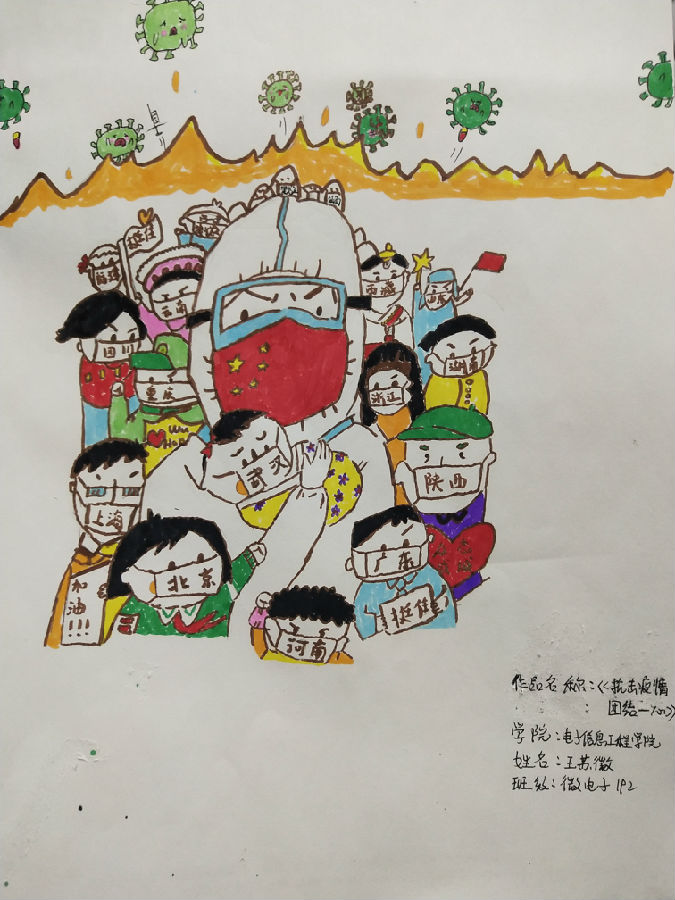 挺住
云南
西藏
四川
湖南
重庆
浙江
Wu
Han
武汉
陕西
上海
广东
北京
加油!!!
挺住
河南
作品名称:《抗击疫情
:团结一心》
学院:电子信息工程学院
姓名:王苏徽
班级:微电子192